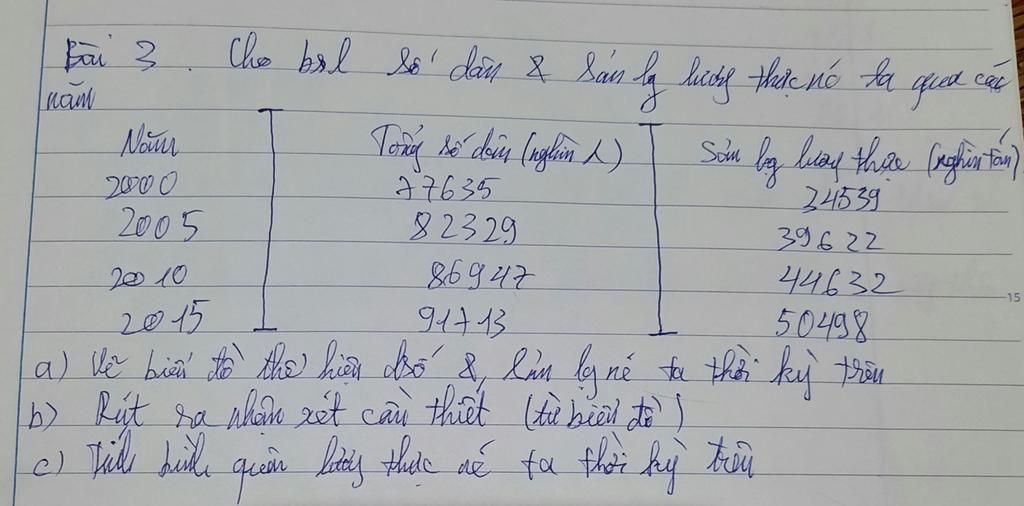 Bài 3. Cho bsl số dân & sản lg lương thực nc ta qua các
năm
Năm Tổng số dân (nghìn ng) Sản lg lương thực (nghìn tấn)
2000 77635 34539
2005 82329 39622
2010 86947 44632
15
2015 91713 50498
a) Vẽ biểu đồ thể hiện dsố & sản lg nc ta thời kỳ trên
b) Rút ra nhận xét cần thiết (từ biểu đồ)
c) Tính bình quân lương thực nc ta thời kỳ trên